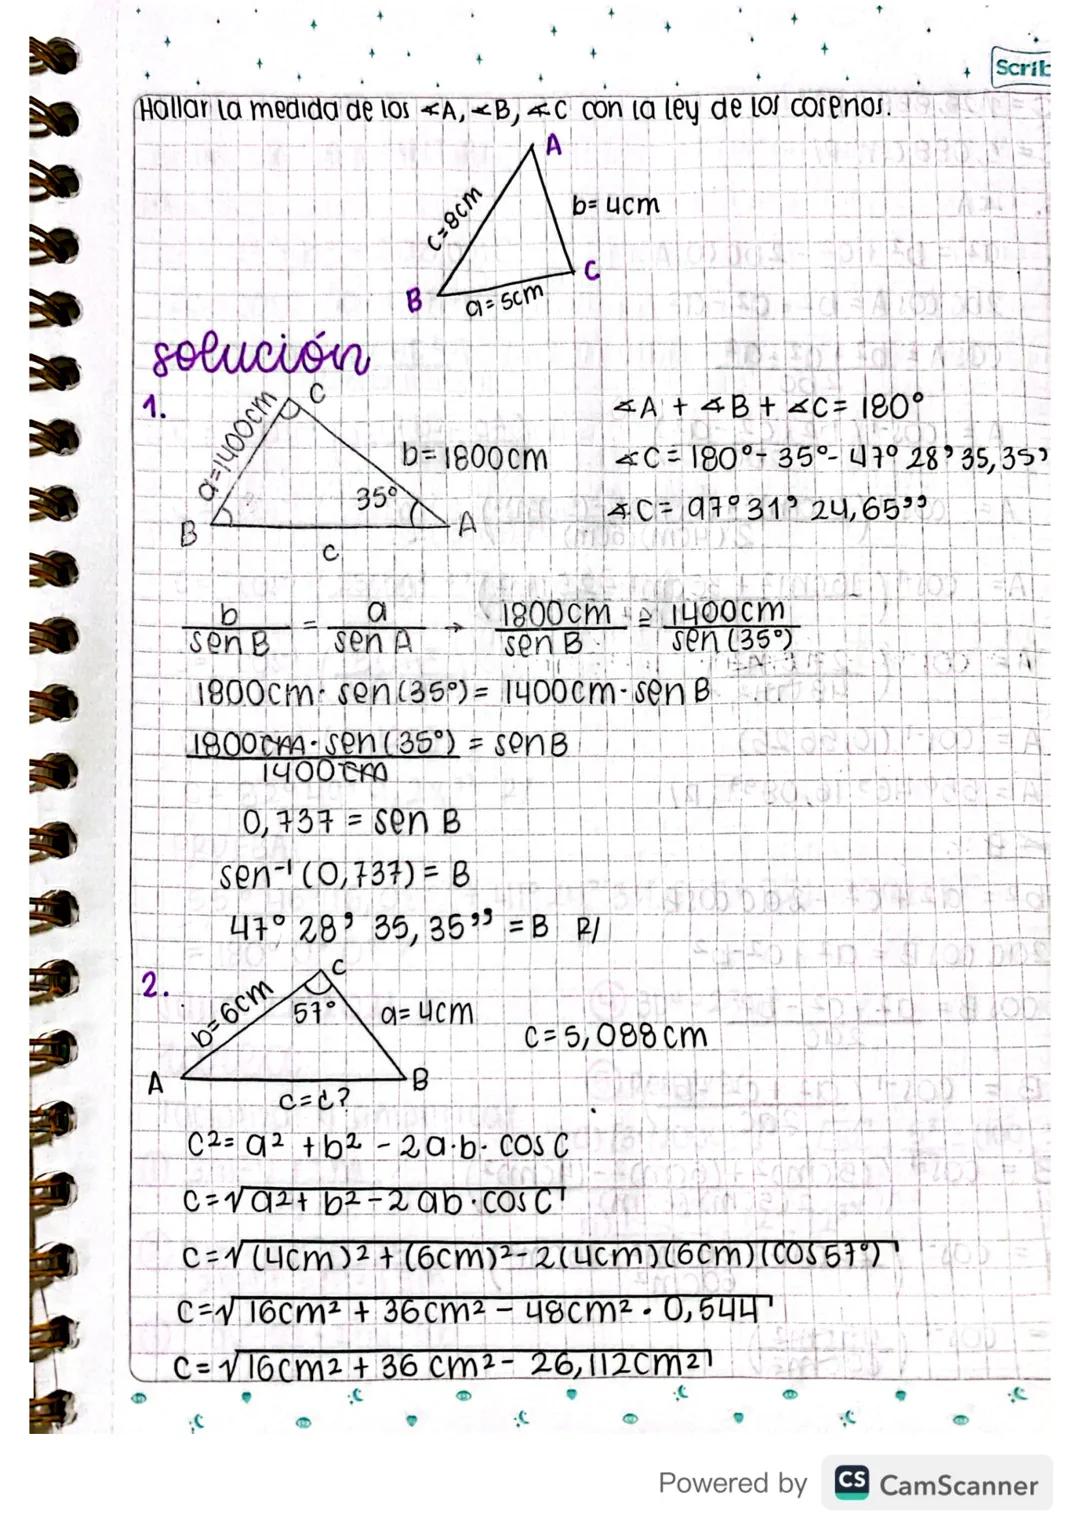 Scrib
Hallar la medida de los ∢A, ∢B, ∢C con la ley de los cosenos.
A
c=8cm
b=4cm
C
B
a=5cm
solución
1.
C
a=1400cm
b=1800cm
35°
B
A
c
∢A + ∢B + ∢C= 180°
∢C= 180°- 35°- 47° 28' 35,35'
∢C= 97° 31' 24,65''
b/sen B = a/sen A → 1800cm/sen B = 1400cm/sen (35°)
1800cm· sen(35°)= 1400cm·sen B
1800cm·sen(35°)/1400cm = senB
0,737 = sen B
sen-¹ (0,737) = B
47° 28' 35,35'' = B R/
2.
C
b=6cm
57°
a=4cm
A
B
c=¿?
c=5,088cm
c²= a² + b² - 2a·b· cos C
c=√a²+ b²-2ab·cos C
c=√(4cm)²+(6cm)²-2(4cm)(6cm)(cos57°)
c=√16cm² + 36cm² - 48cm² · 0,544
c=√16cm² + 36 cm² - 26,112cm²
Powered by CS CamScanner